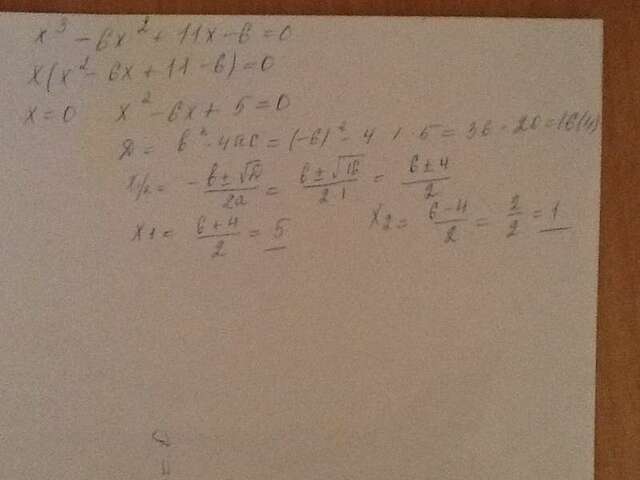 x³ - 6x² + 11x - 6 = 0
x(x² - 6x + 11 - 6) = 0
x = 0 x² - 6x + 5 = 0
D = b² - 4ac = (-6)² - 4 · 1 · 5 = 36 - 20 = 16 (4)
x1/2 = -b±√D / 2a = 6±√16 / 2·1 = 6±4 / 2
x1 = 6+4 / 2 = 5 x2 = 6-4 / 2 = 2/2 = 1